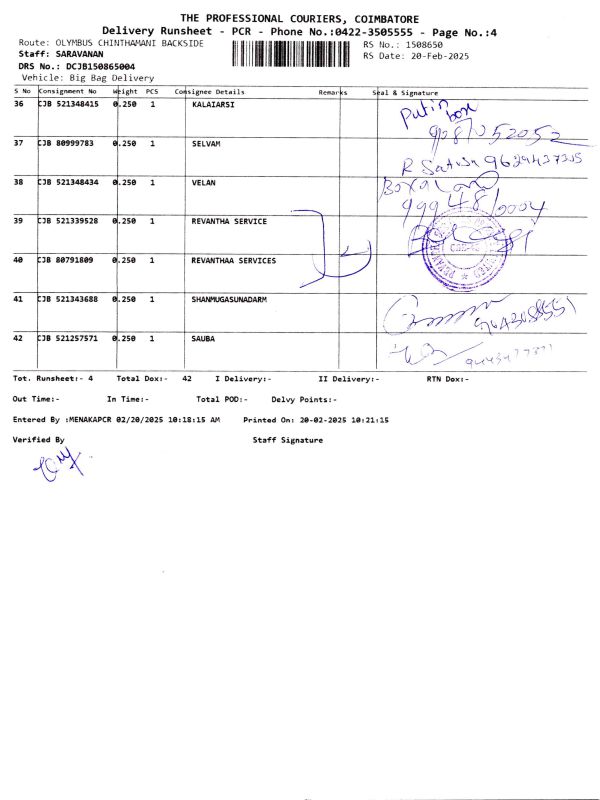 THE PROFESSIONAL COURIERS, COIMBATORE
Delivery Runsheet - PCR - Phone No.:0422-3505555 - Page No.:4
Route: OLYMBUS CHINTHAMANI BACKSIDE RS No.: 1508650
Staff: SARAVANAN RS Date: 20-Feb-2025
DRS No.: DCJB150865004
Vehicle: Big Bag Delivery
S No Consignment No Weight PCS Consignee Details Remarks Seal & Signature
36 CJB 521348415 0.250 1 KALAIARSI
Put in box
9087052052
37 CJB 80999783 0.250 1 SELVAM
R Satish 9629437305
38 CJB 521348434 0.250 1 VELAN
99948/0004
39 CJB 521339528 0.250 1 REVANTHA SERVICE
40 CJB 80791809 0.250 1 REVANTHAA SERVICES
41 CJB 521343688 0.250 1 SHANMUGASUNADARM
42 CJB 521257571 0.250 1 SAUBA
Tot. Runsheet:- 4 Total Dox:- 42 I Delivery:- II Delivery:- RTN Dox:-
Out Time:- In Time:- Total POD:- Delvy Points:-
Entered By :MENAKAPCR 02/20/2025 10:18:15 AM Printed On: 20-02-2025 10:21:15
Verified By Staff Signature